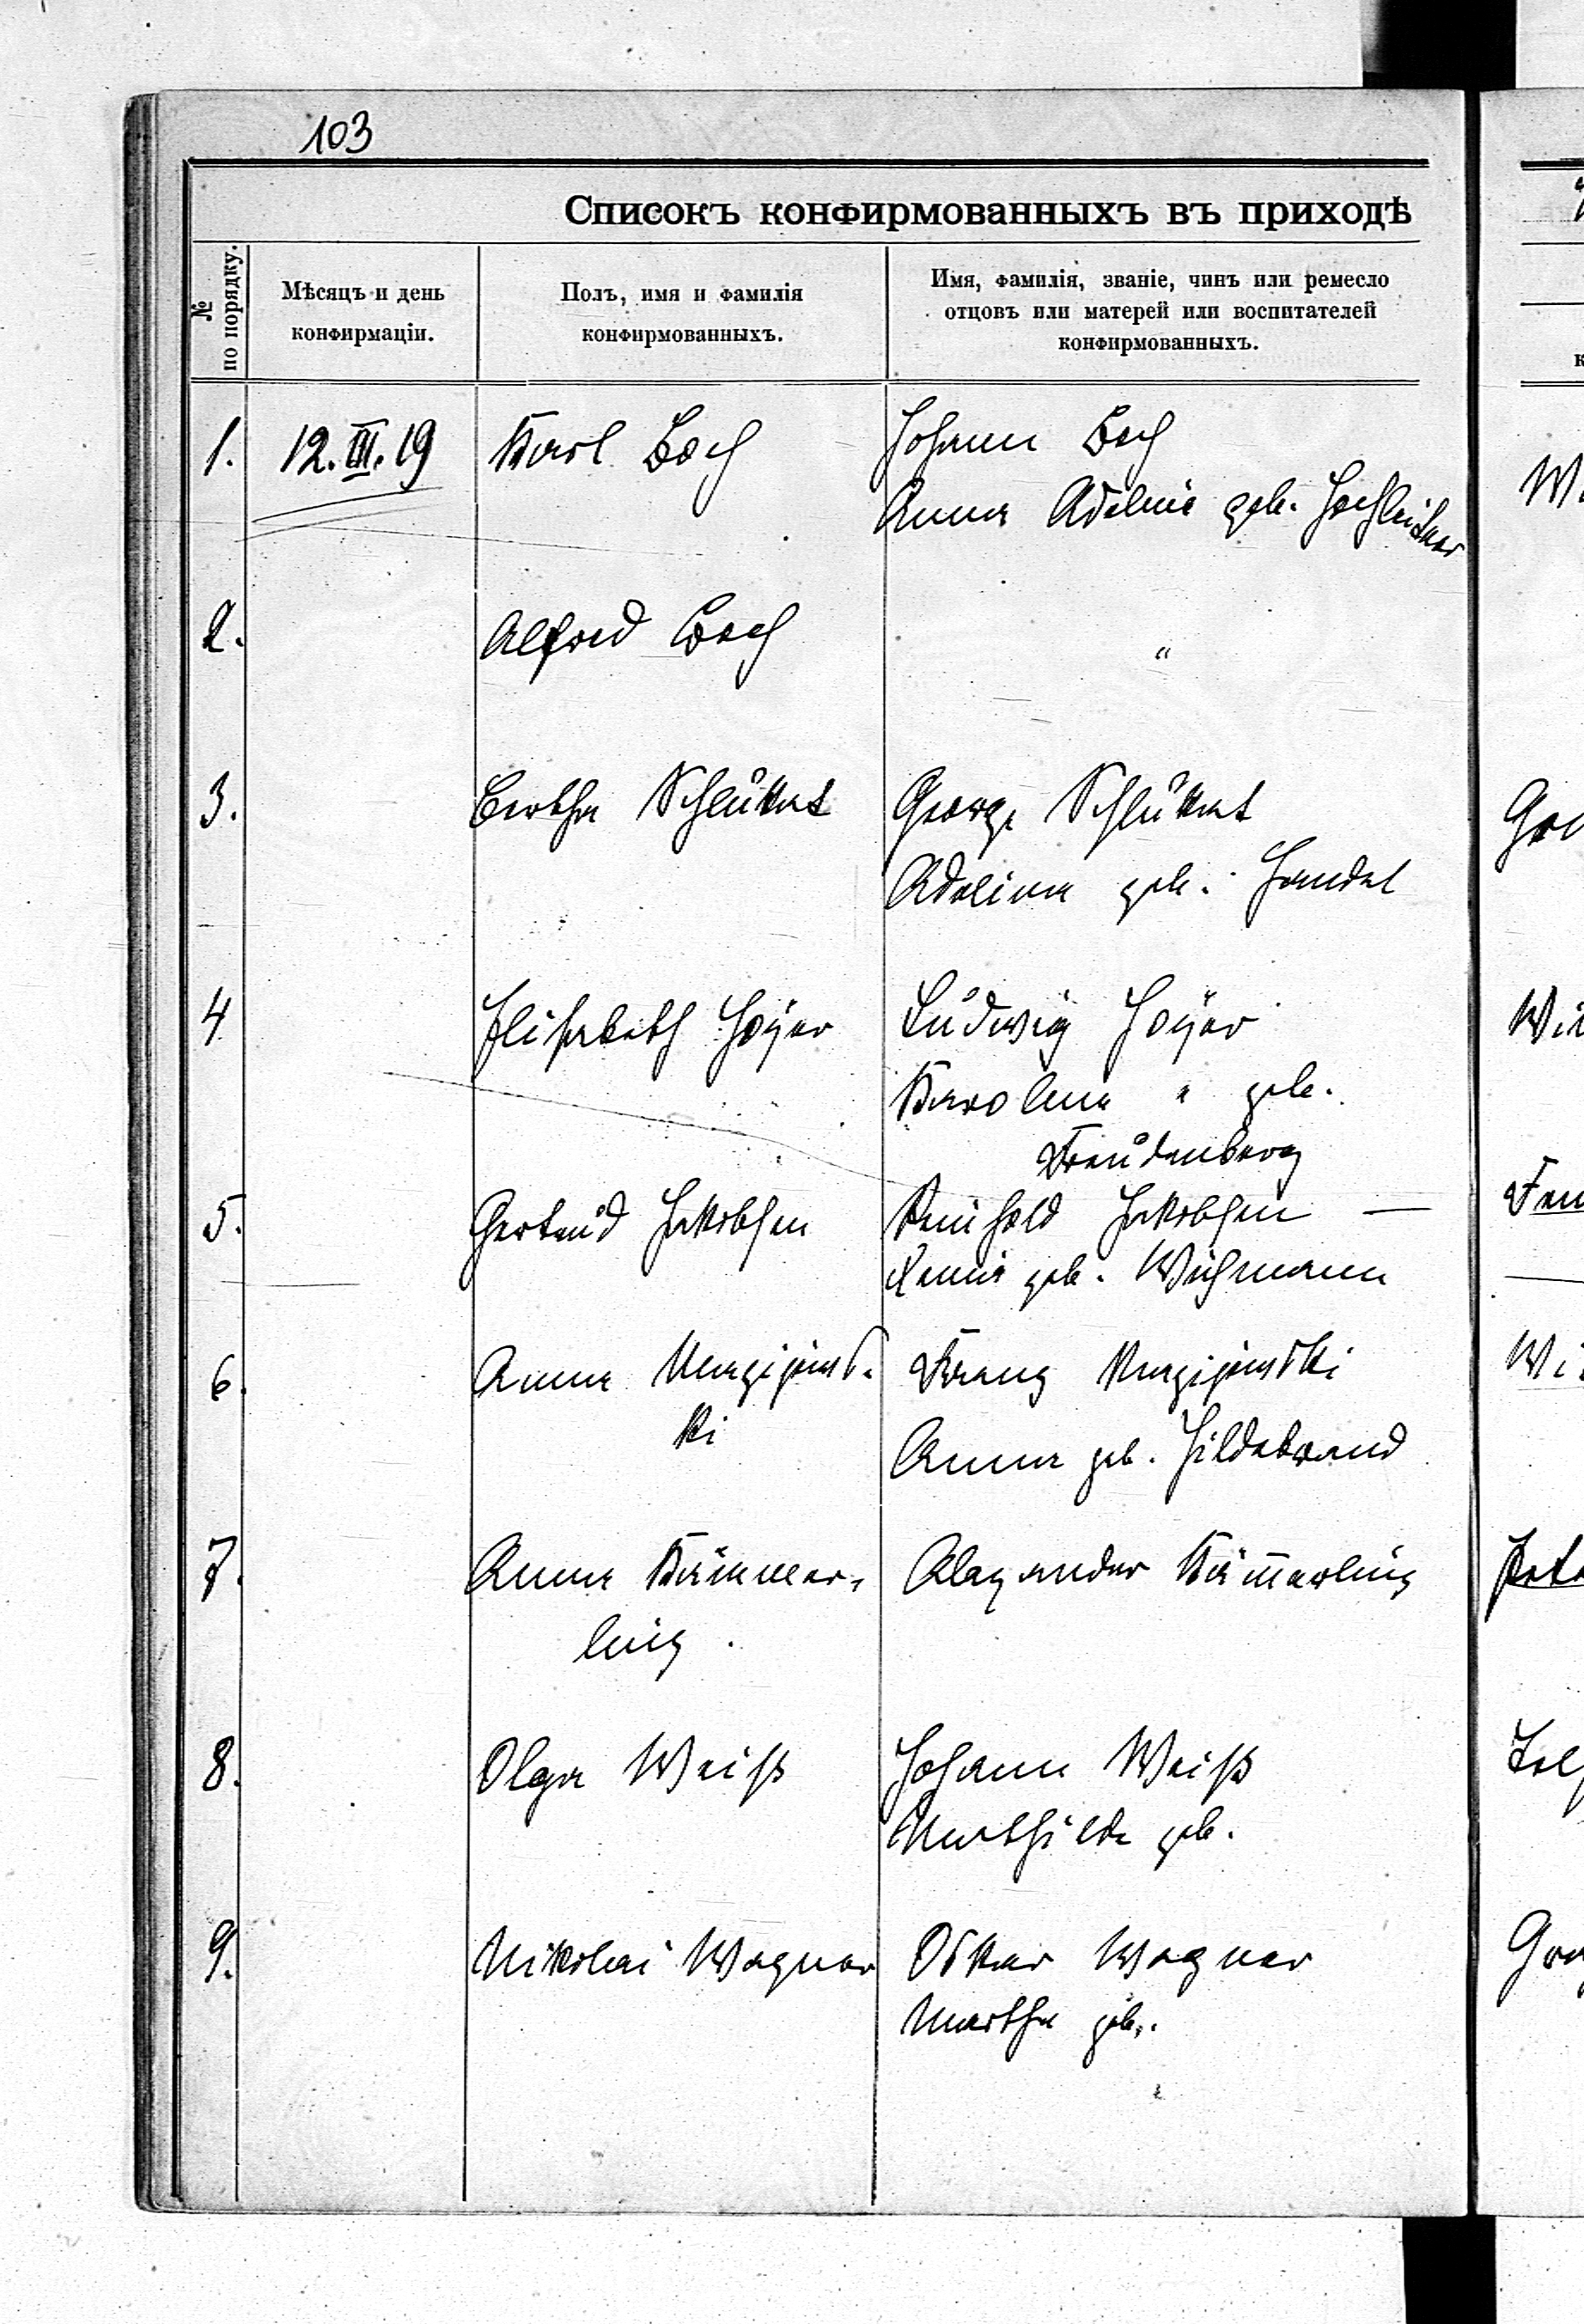 103
Списокъ конфирмованныхъ въ приходѣ
№ по порядку.
Мѣсяцъ и день конфирмаціи.
Полъ, имя и фамилія конфирмованныхъ.
Имя, фамилія, званіе, чинъ или ремесло отцовъ или матерей или воспитателей конфирмованныхъ.
1. 12. III. 19 Karl Boch Johann Boch
Anna Adeline geb. Hochleitner
2. Alfred Boch "
3. Bertha Schlükat George Schlükat
Adeline geb. Handel
4 Elisabeth Hoÿer Ludwig Hoÿer
Karoline " geb.
Freudenberg
5. Gertrud Jakobsen Reinhold Jakobsen —
geb. Wichmann
6. Anna Franz
ki
Anna geb. Hildebrand
7. Anna Kämmer- Alexander Käm̅erling
ling.
8. Olga Weiß Johann Weiß
Mathilde geb.
9. Nikolai Wagner Oskar Wagner
Martha geb.